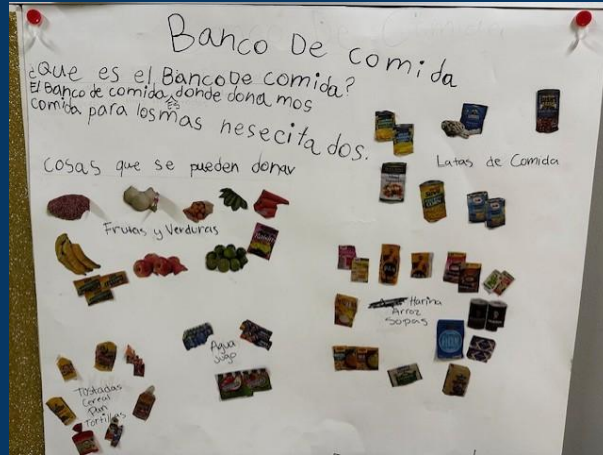 Banco De comida
¿Que es el Banco De comida?
El Banco de comida es donde dona mos
comida para los mas nesecita dos.
cosas que se pueden donar
Latas de Comida
Frutas y Verduras
Harina
Arroz
Sopas
Agua
Jugo
Tostadas
Cereal
Pan
Tortillas